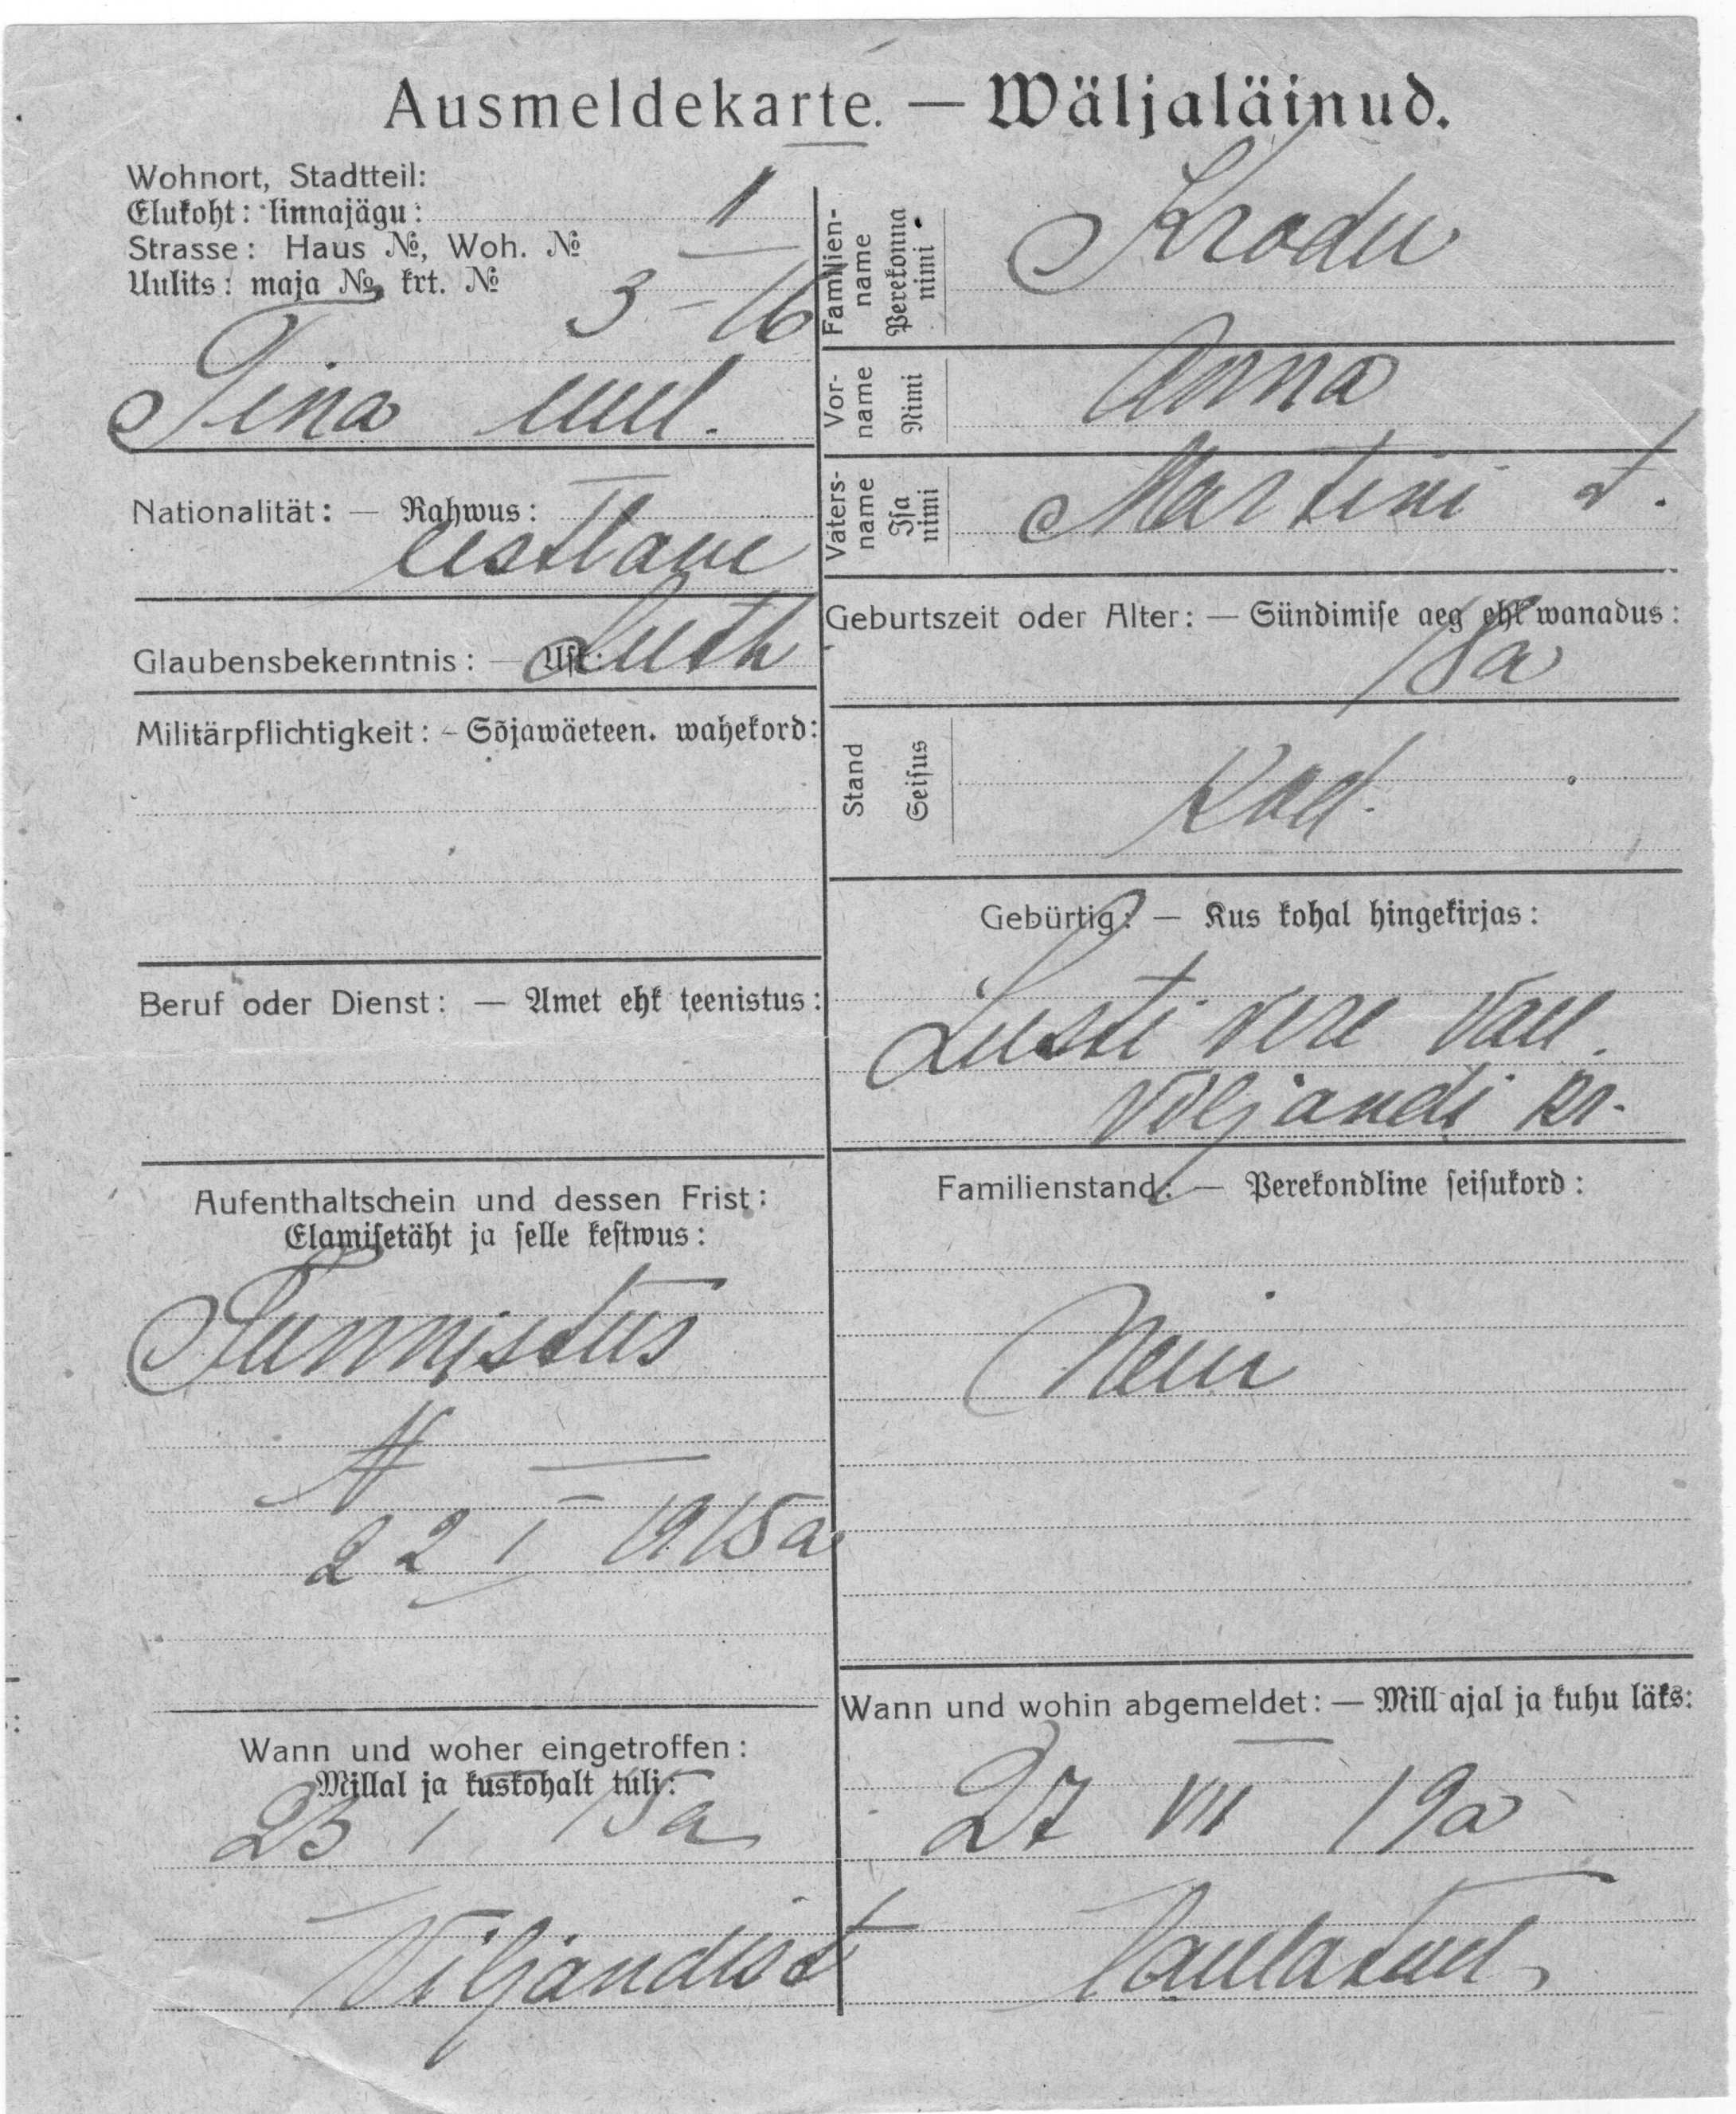 Ausmeldekarte. — Wäljaläinud.
Wohnort, Stadtteil:
Elukoht: linnajägu: 1
Strasse: Haus №, Woh. №
Uulits: maja №, krt. № 3 – 16
Tina uul.
Nationalität: — Rahwus:
eestlane
Glaubensbekenntnis: — Usk: Luth
Militärpflichtigkeit: – Sõjawäeteen. wahekord:
Beruf oder Dienst: — Amet ehk teenistus:
Aufenthaltschein und dessen Frist:
Elamisetäht ja selle kestwus:
Tunnistus
N —
22 I 1915 a
Wann und woher eingetroffen:
Millal ja kuskohalt tuli:
23 I 15 a
Viljandist
Familien-
name
Perekonna
nimi
Krodu
Vor-
name
Nimi
Anna
Vaters-
name
Isa
nimi
Martini t.
Geburtszeit oder Alter: — Sündimise aeg ehk wanadus:
18 a
Stand
Seisus
Gebürtig: — Kus kohal hingekirjas:
Lustivere vall.
Viljandi kr.
Familienstand: — Perekondline seisukord:
Wann und wohin abgemeldet: — Mill ajal ja kuhu läks:
27 VII 19 a